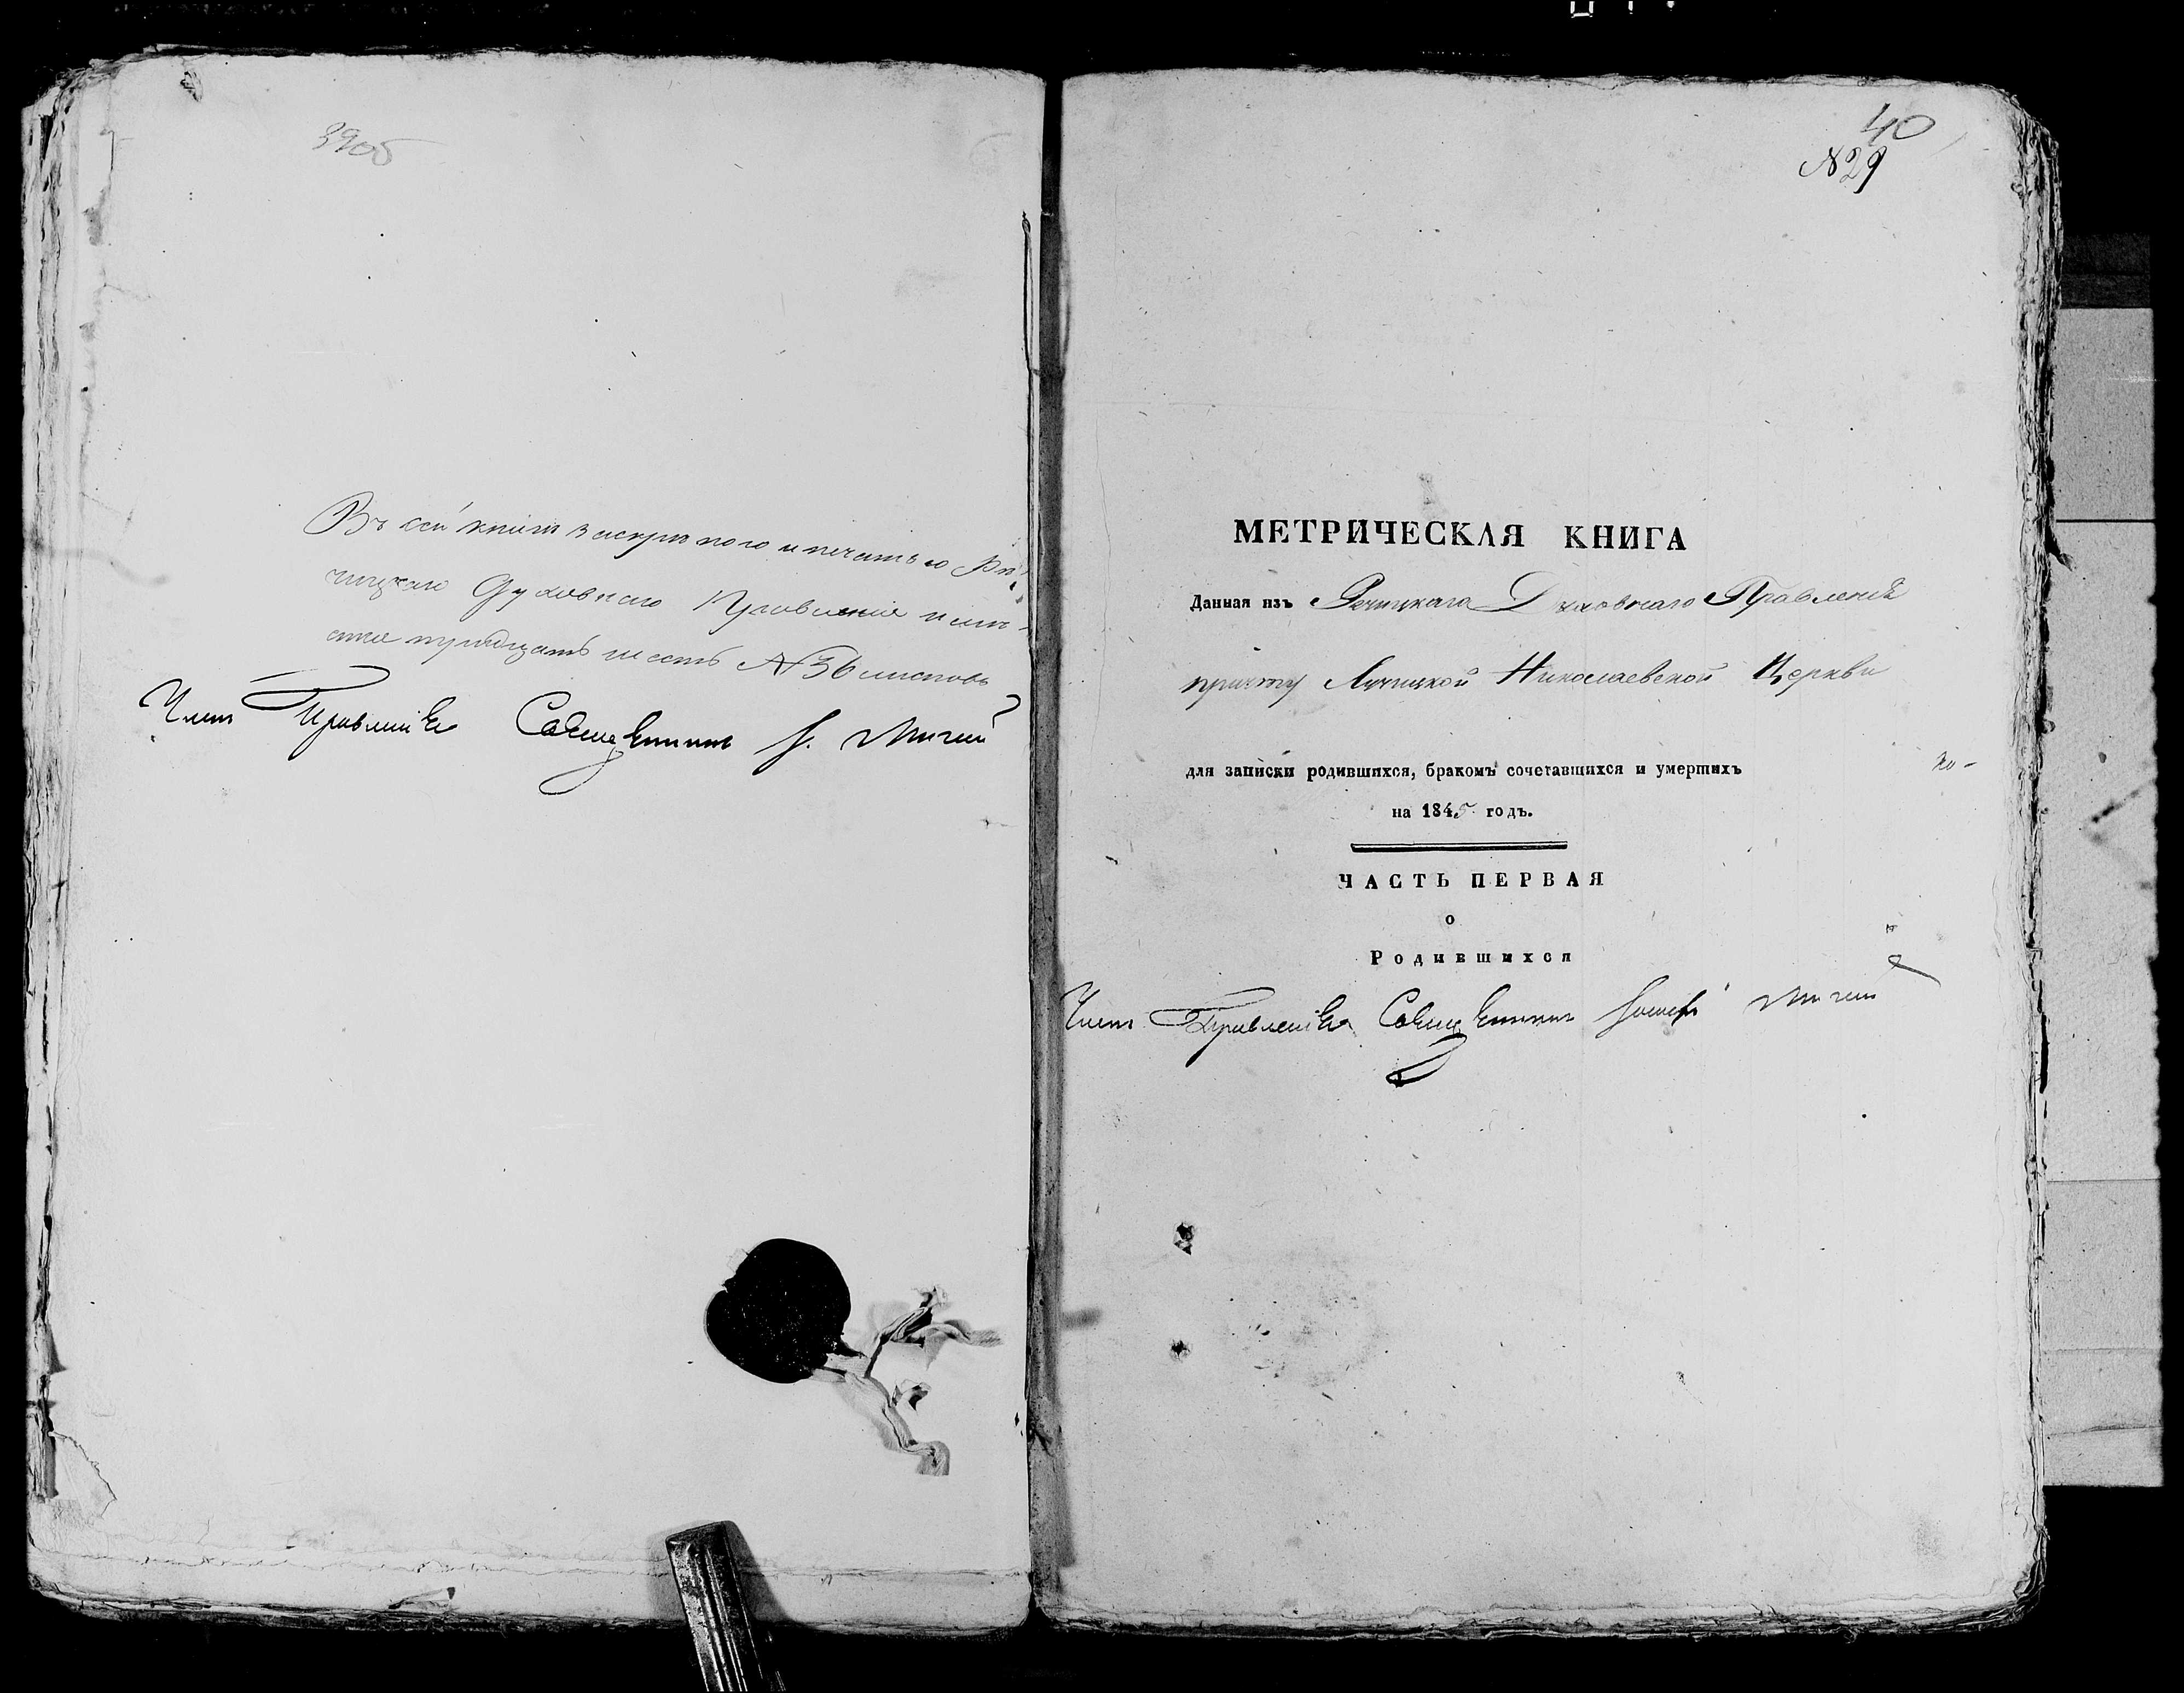 39об
Въ сей книги за скрѣпою и печатью Рѣ-
чицкаго Духовнаго Правленія
тридцать шесть №36 листовъ
Членъ Правленія Священникъ І.
40
№29
МЕТРИЧЕСКАЯ КНИГА
Данная изъ Речицкаго Духовнаго Правленія
причту Лучицкой Николаевской Церкви
для записки родившихся, бракомъ сочетавшихся и умершихъ
на 1845 годъ.
ЧАСТЬ ПЕРВАЯ
о
Родившихся
Членъ Правленія Священникъ Іосифъ